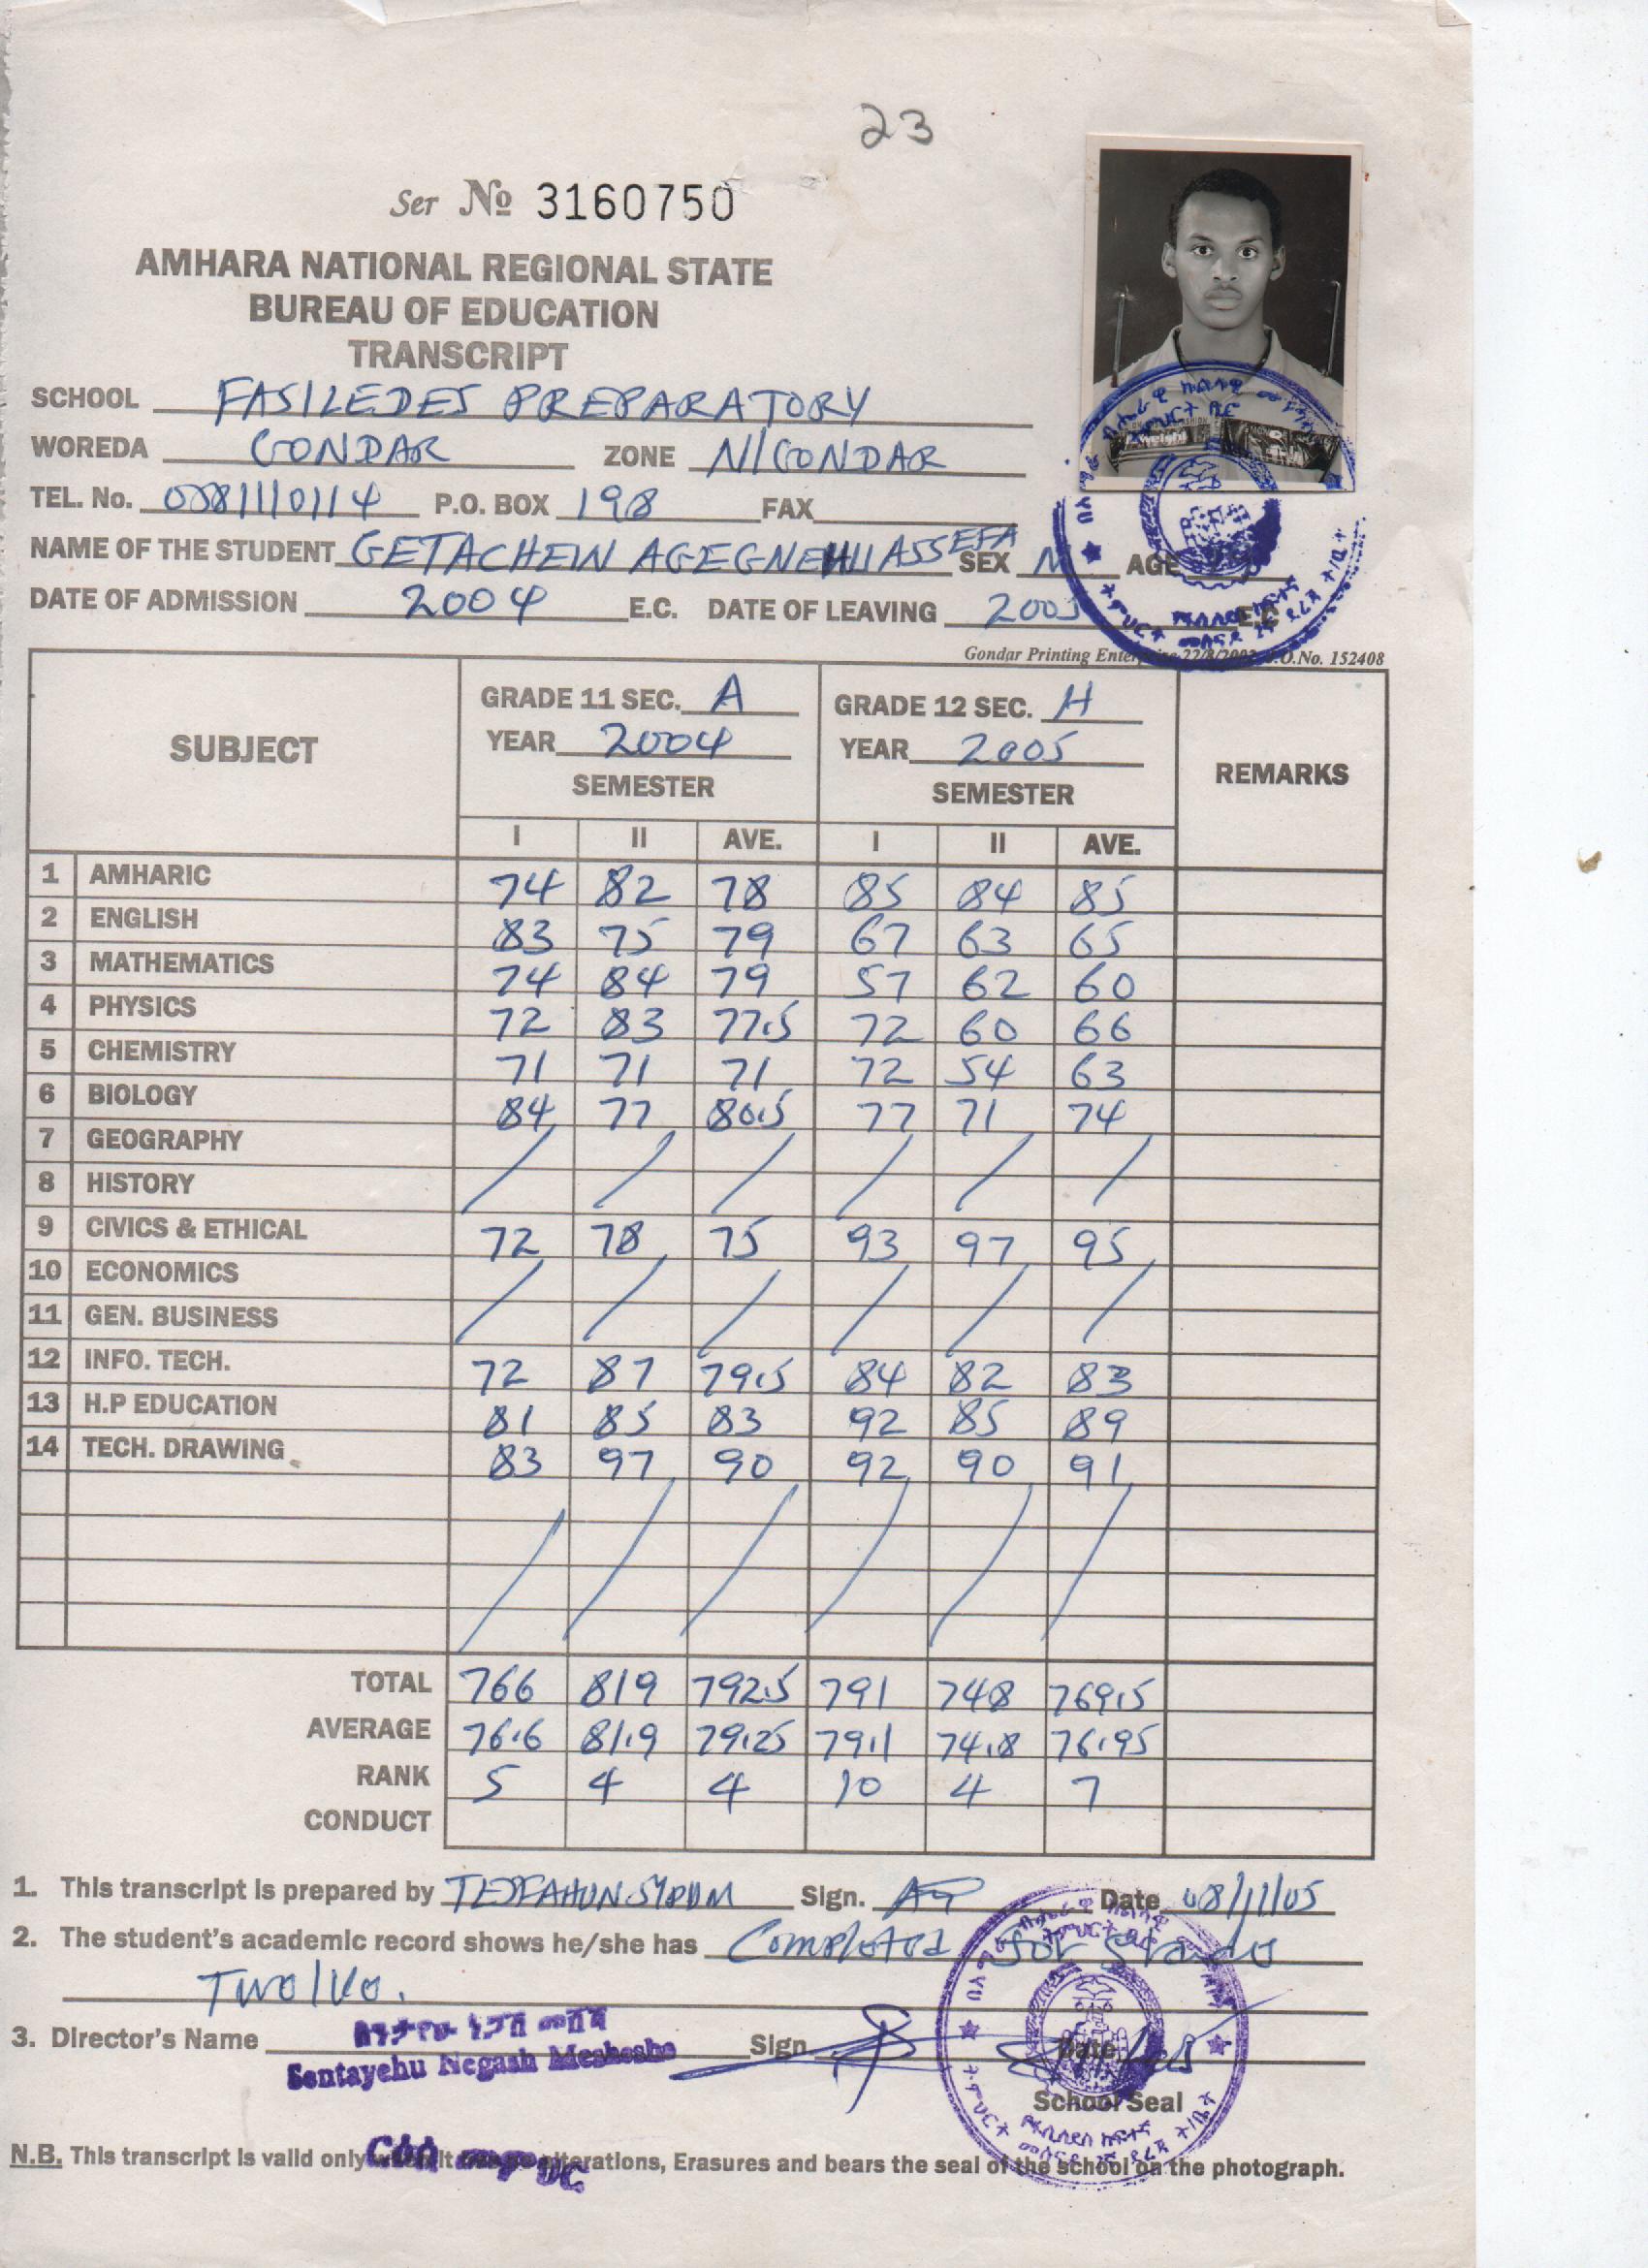 23
Ser No 3160750
AMHARA NATIONAL REGIONAL STATE
BUREAU OF EDUCATION
TRANSCRIPT
SCHOOL FASILEDES PREPARATORY
WOREDA GONDAR ZONE N/GONDAR
TEL. No. 0581110114 P.O. BOX 198 FAX
NAME OF THE STUDENT GETACHEW AGEGNEHU ASSEFA SEX M AGE
DATE OF ADMISSION 2004 E.C. DATE OF LEAVING 2005 E.C
Gondar Printing Enterprise 22/8/2002 P.O.No. 152408
SUBJECT GRADE 11 SEC. A GRADE 12 SEC. H REMARKS
YEAR 2004 YEAR 2005
SEMESTER SEMESTER
I II AVE. I II AVE.
1 AMHARIC 74 82 78 85 84 85
2 ENGLISH 83 75 79 67 63 65
3 MATHEMATICS 74 84 79 57 62 60
4 PHYSICS 72 83 77.5 72 60 66
5 CHEMISTRY 71 71 71 72 54 63
6 BIOLOGY 84 77 80.5 77 71 74
7 GEOGRAPHY
8 HISTORY
9 CIVICS & ETHICAL 72 78 75 93 97 95
10 ECONOMICS
11 GEN. BUSINESS
12 INFO. TECH. 72 87 79.5 84 82 83
13 H.P EDUCATION 81 85 83 92 85 89
14 TECH. DRAWING 83 97 90 92 90 91
TOTAL 766 819 792.5 791 748 769.5
AVERAGE 76.6 81.9 79.25 79.1 74.8 76.95
RANK 5 4 4 10 4 7
CONDUCT
1. This transcript is prepared by Sign. Date 08/11/05
2. The student's academic record shows he/she has Completed for Grade
Twelve.
3. Director's Name Sign Date
Sentayehu Negash Meshesha
School Seal
ርዕሰ መምህር
N.B. This transcript is valid only when it alterations, Erasures and bears the seal of the school on the photograph.